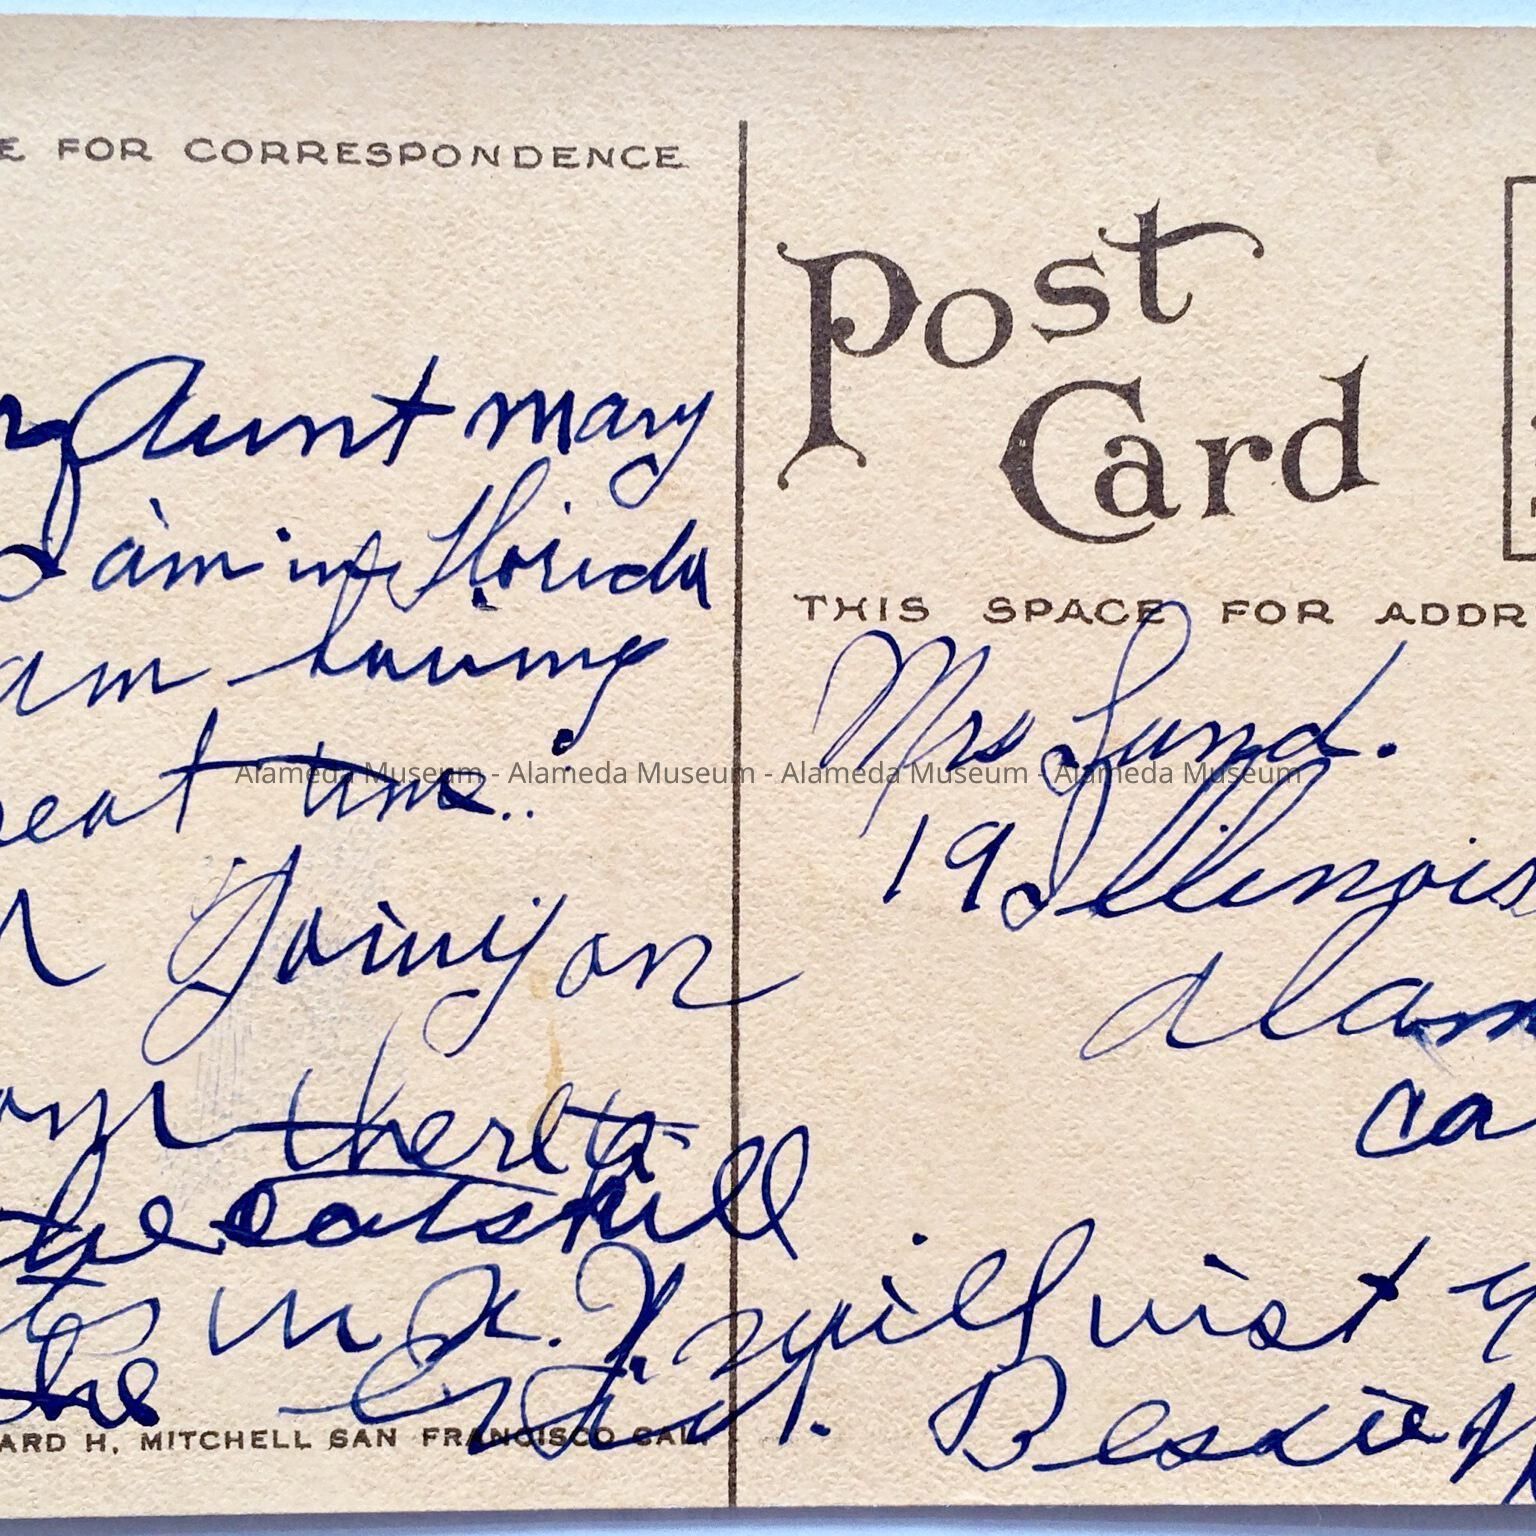 E FOR CORRESPONDENCE
Aunt mary
I am in Florida
am having
reat time..
Going on
from there to
the catskill
in n. y.
the End.
ARD H. MITCHELL SAN FRANCISCO CAL.
Post
Card
THIS SPACE FOR ADDR
Mrs Lund.
19 Illinois
alam
ca
will visit
Bessie
Alameda Museum - Alameda Museum - Alameda Museum - Alameda Museum